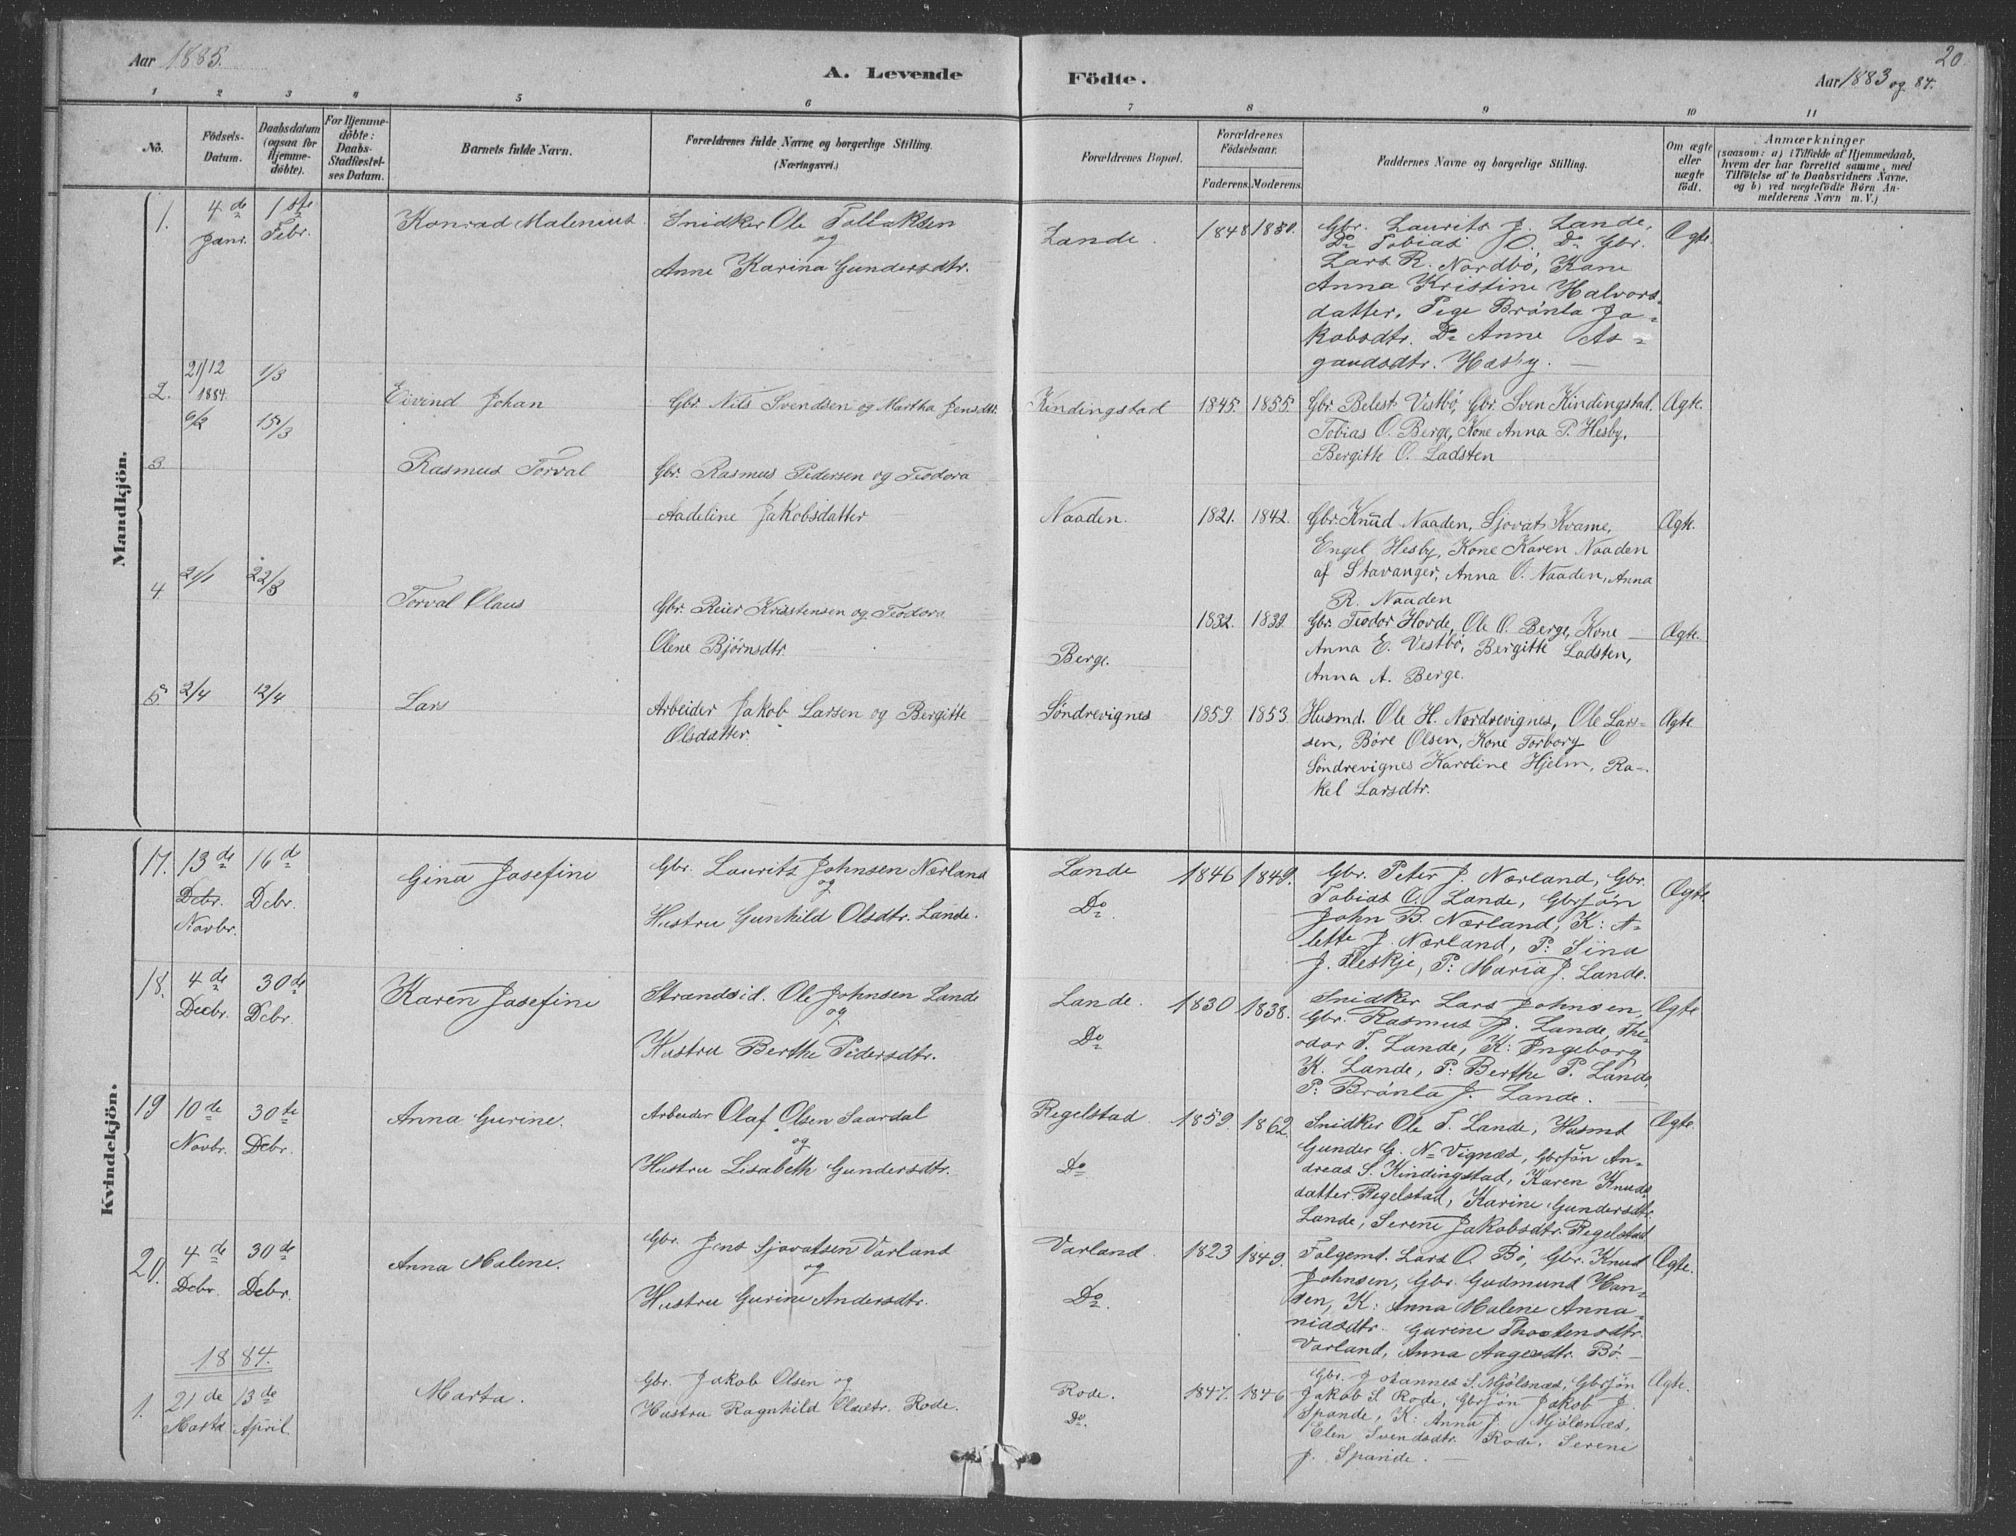 Aar 1885.
A. Levende Födte.
20.
Aar 1883 og 84.
1 2 3 4 5 6 7 8 9 10 11
No.
Födsels-Datum.
Daabsdatum (ogsaa for Hjemme-döbte).
For Hjemme-döbte: Daabs-Stadfæstel-ses Datum.
Barnets fulde Navn.
Forældrenes fulde Navne og borgerlige Stilling. (Næringsvei.)
Forældrenes Bopæl.
Forældrenes Födselsaar.
Faderens. Moderens.
Faddernes Navne og borgerlige Stilling.
Om ægte eller uægte födt.
Anmærkninger
(saasom: a) i Tilfælde af Hjemmedaab,
hvem der har forrettet samme, med
Tilföielse af to Daabsvidners Navne,
og b) ved uægtefödte Börn An-
melderens Navn m. V.)
Mandkjön.
1. 4de Janr. 1ste Febr. Konrad Malenius. Snidker Ole Tollaksen
og
Anne Karina Gundersdtr.
Lande. 1848 1850. Gbr. Laurits J. Lande, Ægte.
Do Tobias O. Do Gbr.
Lars R. Nordbö, Kone
Anna Kristine Halvors-
datter, Pige Brönla Ja-
kobsdtr. Do Anne As-
gautsdtr. Hæsby. —
2. 21/12 1884. 1/3 Eivind Johan Gbr. Nils Svendsen og Martha Jensdtr. Kindingstad 1845. 1855. Gbr. Belest Vestbö, Gbr. Sven Kindingstad. Ægte.
Tobias O. Berge, Kone Anna P. Hesby,
Bergitte O. Ladsten
3 6/2 15/3 Rasmus Torval Gbr. Rasmus Pedersen og Teodora
Aadeline Jakobsdatter
Naaden. 1821. 1842. Gbr. Knud Naaden, Sjovat Kvame, Ægte.
Engel Hesby, Kone Karen Naaden
af Stavanger, Anna O. Naaden, Anna
R. Naaden
4. 21/1 22/3 Torval Olaus Gbr. Reier Kristensen og Teodora
Olene Bjørnsdtr.
Berge. 1832. 1839. Gbr. Teodor Hovde, Ole O. Berge, Kone Ægte.
Anna E. Vestbö, Bergitte Ladsten,
Anna A. Berge.
5. 2/4 12/4 Lars Arbeider Jakob Larsen og Bergitte
Olsdatter.
Söndrevignes 1859. 1853. Husmd. Ole H. Nordrevignes, Ole Lars- Ægte.
sen, Böre Olsen, Kone Torborg O
Söndrevignes Karoline Hjelm, Ra-
kel Larsdtr.
Kvindekjön.
17. 13de Debr. Novbr. 16de Debr. Gina Josefine Gbr. Laurits Johnsen Nærland
og
Hustru Gunhild Olsdtr. Lande.
Lande Do 1846 1849. Gbr. Peter J. Nærland, Gbr. Ægte.
Tobias O. Lande, Gbrsön
John B. Nærland, K: A-
lette J. Nærland, P: Sina
J. Fleskje, P: Maria J. Lande.
18. 4de Decbr. 30de Debr. Karen Josefine Strandsid. Ole Johnsen Lande
og
Hustru Berthe Pedersdtr.
Lande. Do 1830 1838. Snidker Lars Johnsen, Ægte
Gbr. Rasmus J. Lande, The-
odor T. Lande, K: Ingeborg
K. Lande, P: Berthe P. Lande
P: Brönla J. Lande. —
19 10de Novbr. 30te Debr. Anna Gurine. Arbeider Olaf Olsen Saardal
og
Hustru Lisabeth Gundersdtr.
Regelstad Do 1859. 1862. Snidker Ole T. Lande, Husmd Ægte.
Gunder G. N= Vignæs, Gbrsön An-
dreas S. Kindingstad, Karen Knuds-
datter Regelstad, Karine Gundersdtr.
Lande, Serene Jakobsdtr. Regelstad
20. 4de Debr. 30de Debr. Anna Malene. Gbr. Jens Sjovatsen Varland
og
Hustru Gurine Andersdtr.
Varland. Do 1823 1849. Folgemd. Lars O. Bö, Gbr. Knud Ægte.
Johnsen, Gbr. Gudmund Han-
sen, K: Anna Malene Anna-
niasdtr. Gurine Thostensdtr.
Varland, Anna Aagesdtr. Bö. —
1884.
1. 21de Marts 13de April Marta. Gbr. Jakob Olsen og
Hustru Ragnhild Olsdtr. Rode.
Rode. Do 1847. 1846. Gbr. Johannes S. Mjölsnæs, Gbrsön Ægte.
Jakob S. Rode, Gbrsön Jakob J.
Spande, K: Anna J. Mjölsnæs,
Elen Svendsdtr. Rode, Serene
J. Spande. —